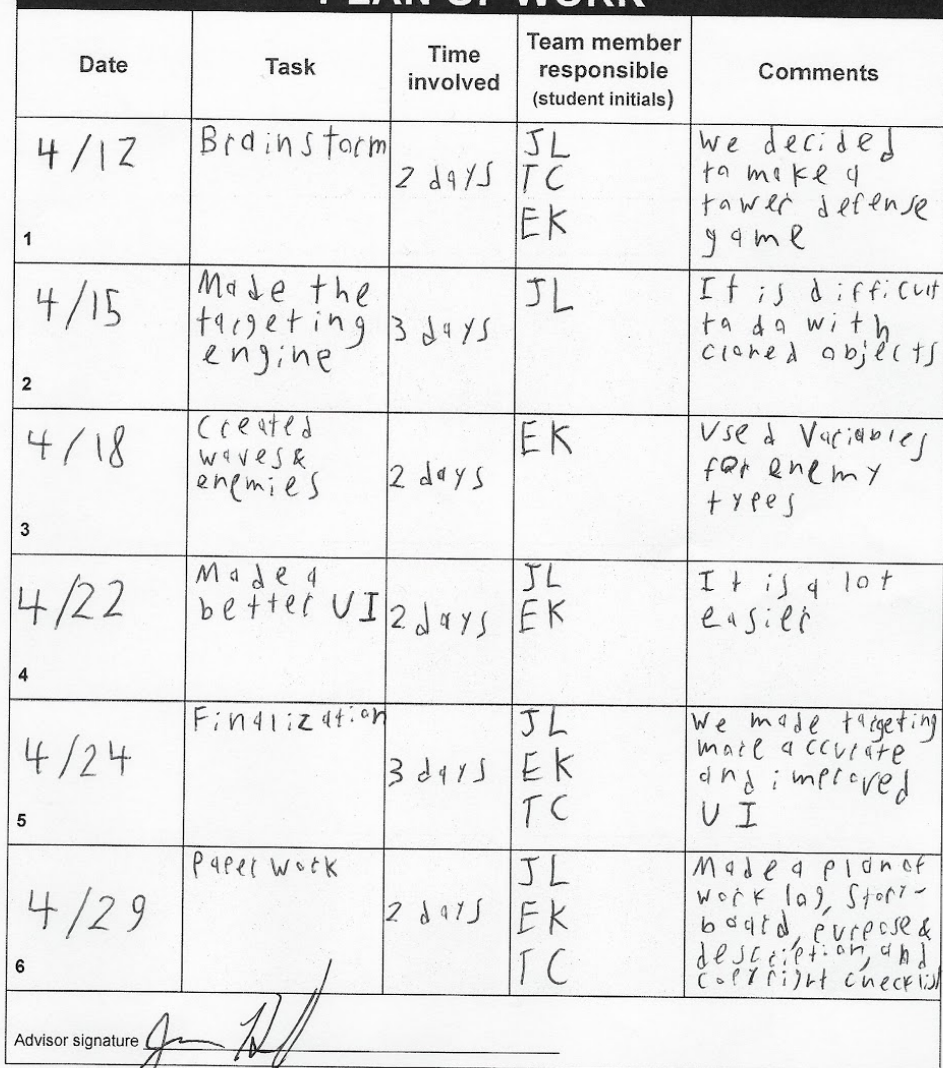 PLAN OF WORK
Date
Task
Time
involved
Team member
responsible
(student initials)
Comments
4/12
1
Brainstorm
2 days
JL
TC
EK
We decided
to make a
tower defense
game
4/15
2
Made the
targeting
engine
3 days
JL
It is difficult
to do with
cloned objects
4/18
3
Created
waves &
enemies
2 days
EK
Used Variables
for enemy
types
4/22
4
Made a
better UI
2 days
JL
EK
It is a lot
easier
4/24
5
Finalization
3 days
JL
EK
TC
We made targeting
more accurate
and improved
UI
4/29
6
Paper work
2 days
JL
EK
TC
Made a plan of
work log, story-
board, purpose &
description, and
copyright checklist
Advisor signature